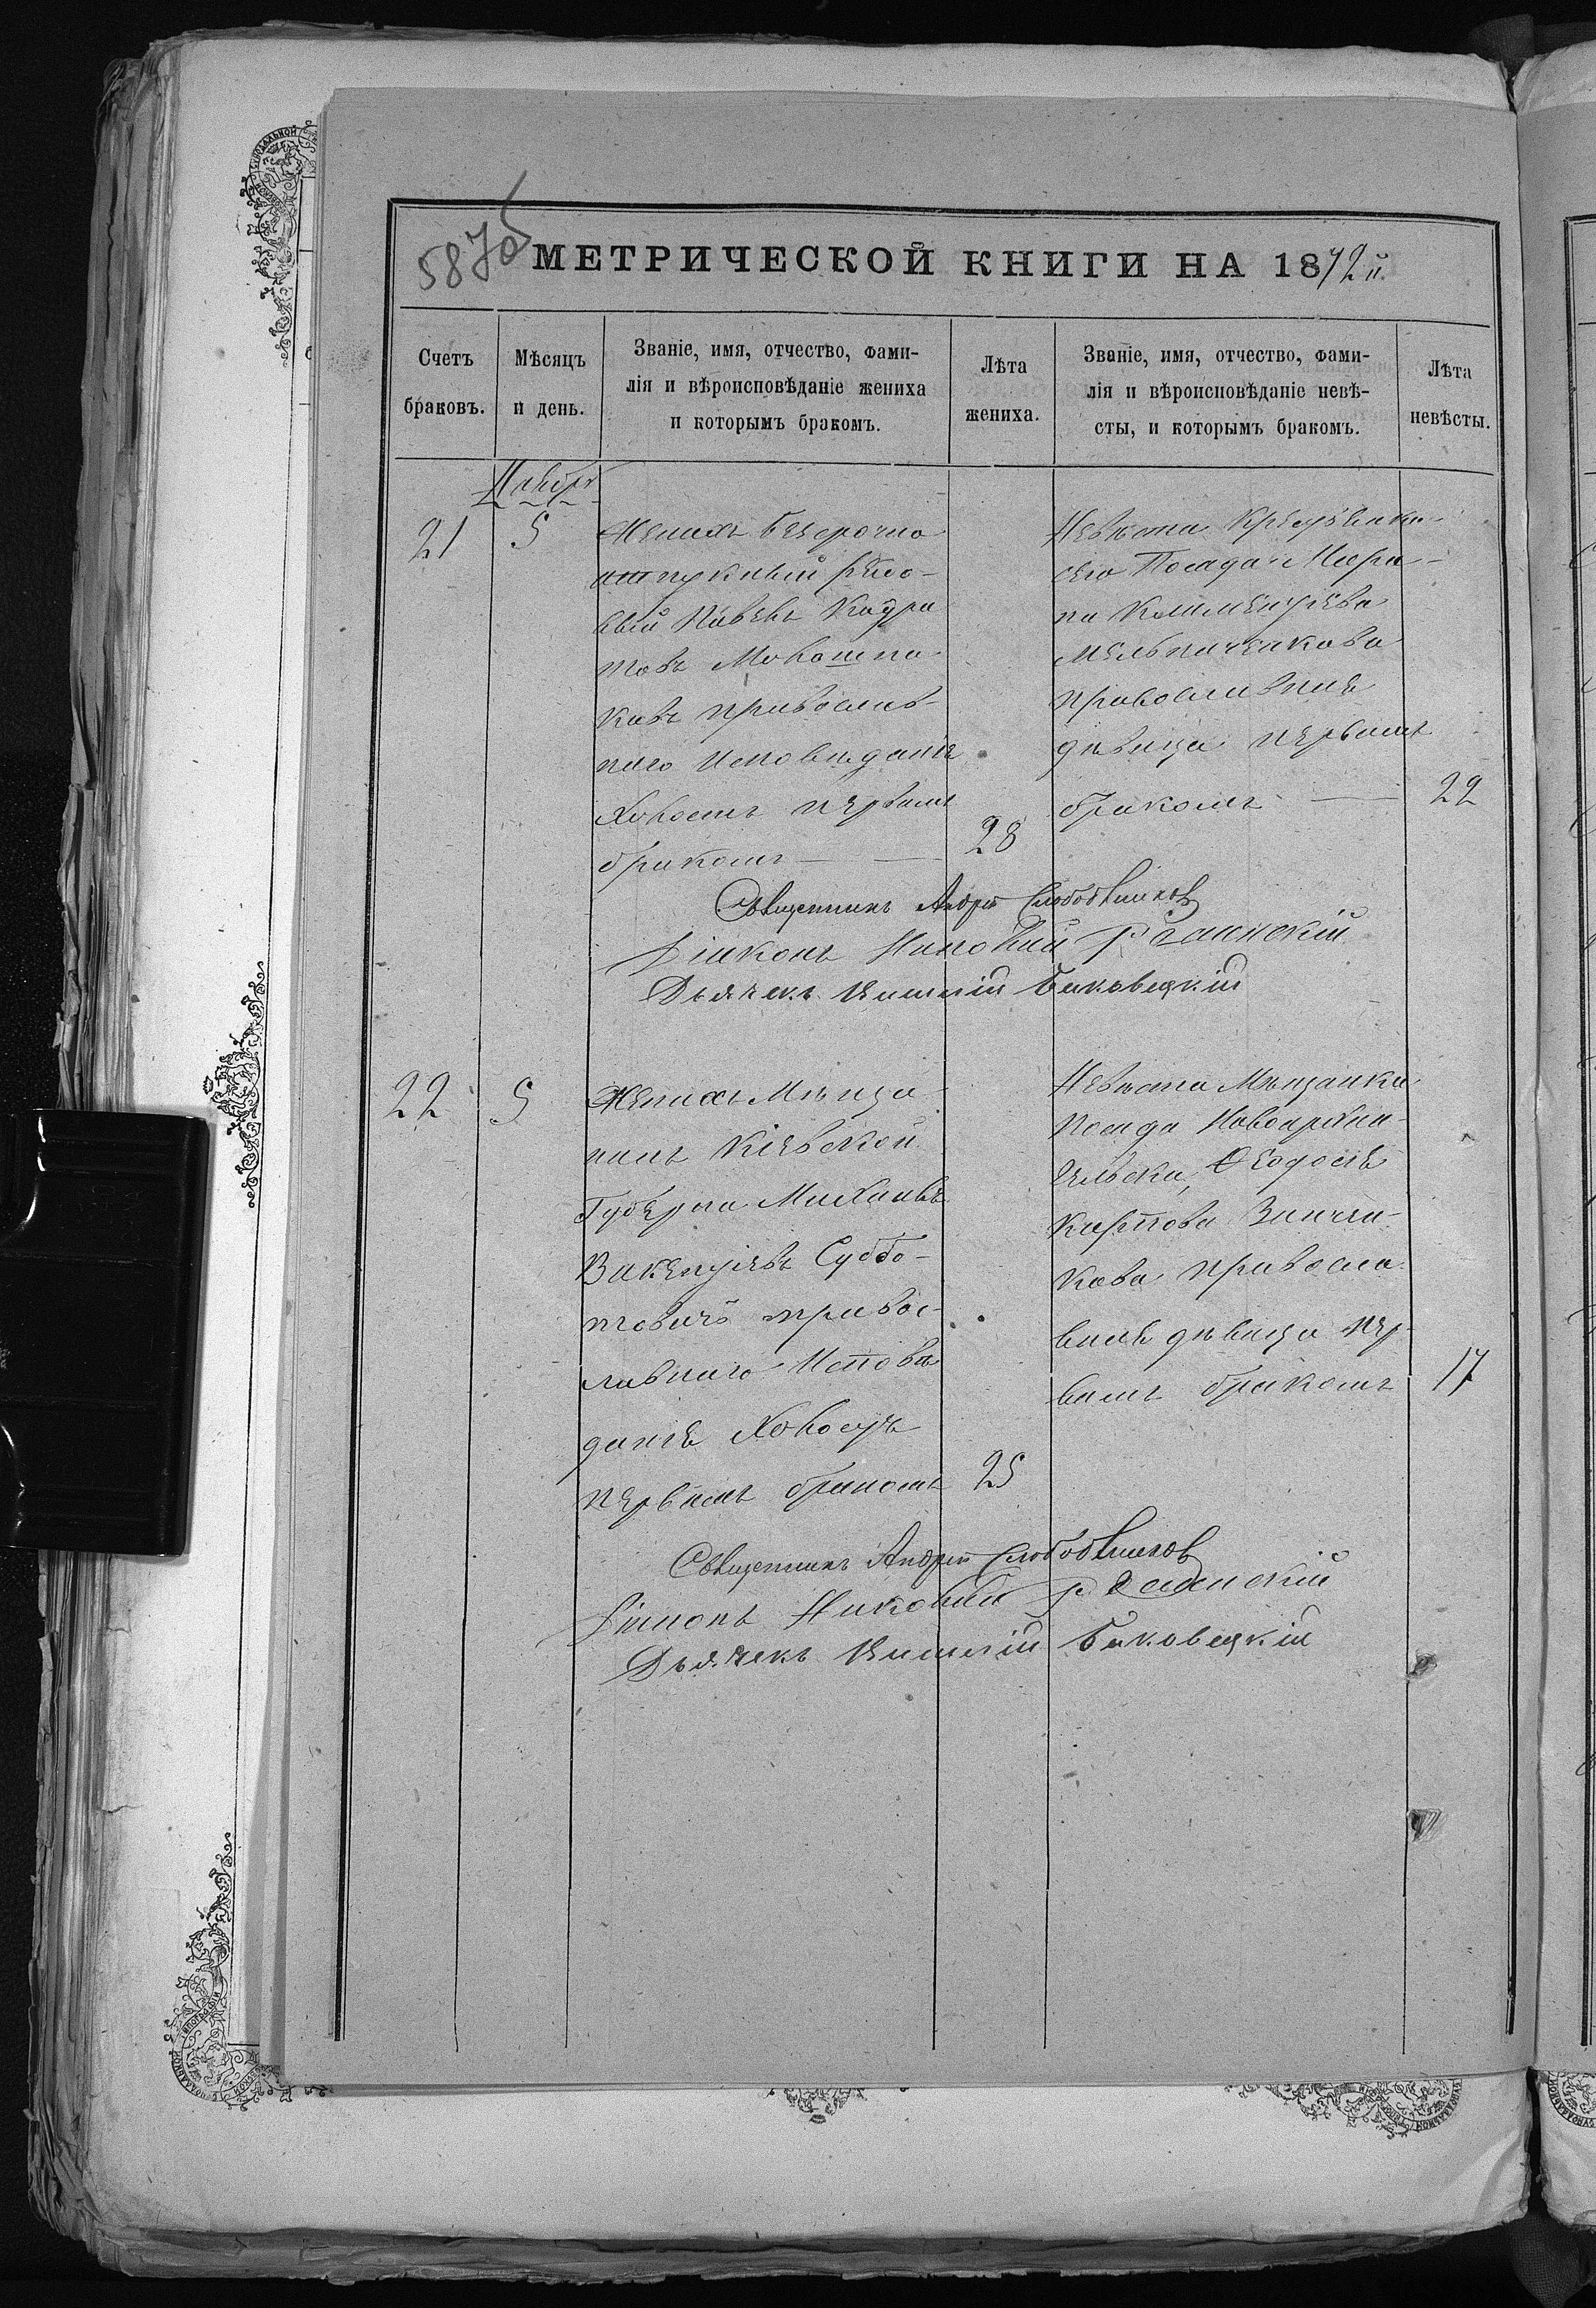 587об
МЕТРИЧЕСКОЙ КНИГИ НА 1872й.
Счетъ браковъ.
Мѣсяцъ и день.
Званіе, имя, отчество, фами-
лія и вѣроисповѣданіе жениха
и которымъ бракомъ.
Лѣта жениха.
Званіе, имя, отчество, фами-
лія и вѣроисповѣданіе невѣ-
сты, и которымъ бракомъ.
Лѣта невѣсты.
21
5
Женихъ безсрочно
отпускный рядо-
вый Павелъ Кодра
товъ
ковъ православ-
наго исповѣданія
Холостъ первымъ
бракомъ
28
Невѣста
Посада Мари-
на Климентіева
Мельниченкова
православная
дѣвица первымъ
бракомъ
22
Священникъ Андрей
Діаконъ Николай
Дьячекъ Василій Быковецкій
22
5
Женихъ Мѣща
нинъ Кіевской
Губерніи Михаилъ
Викентіевъ Суббо-
товичъ правос-
лавнаго Исповѣ
данія Холостъ
первымъ бракомъ
25
Невѣста Мѣщанка
Посада Новоархан-
гельска, Ѳеодосія
Карпова
кова правосла
вная дѣвица пер-
вымъ бракомъ
17
Священникъ Андрей
Діаконъ Николай
Дьячекъ Василій Быковецкій